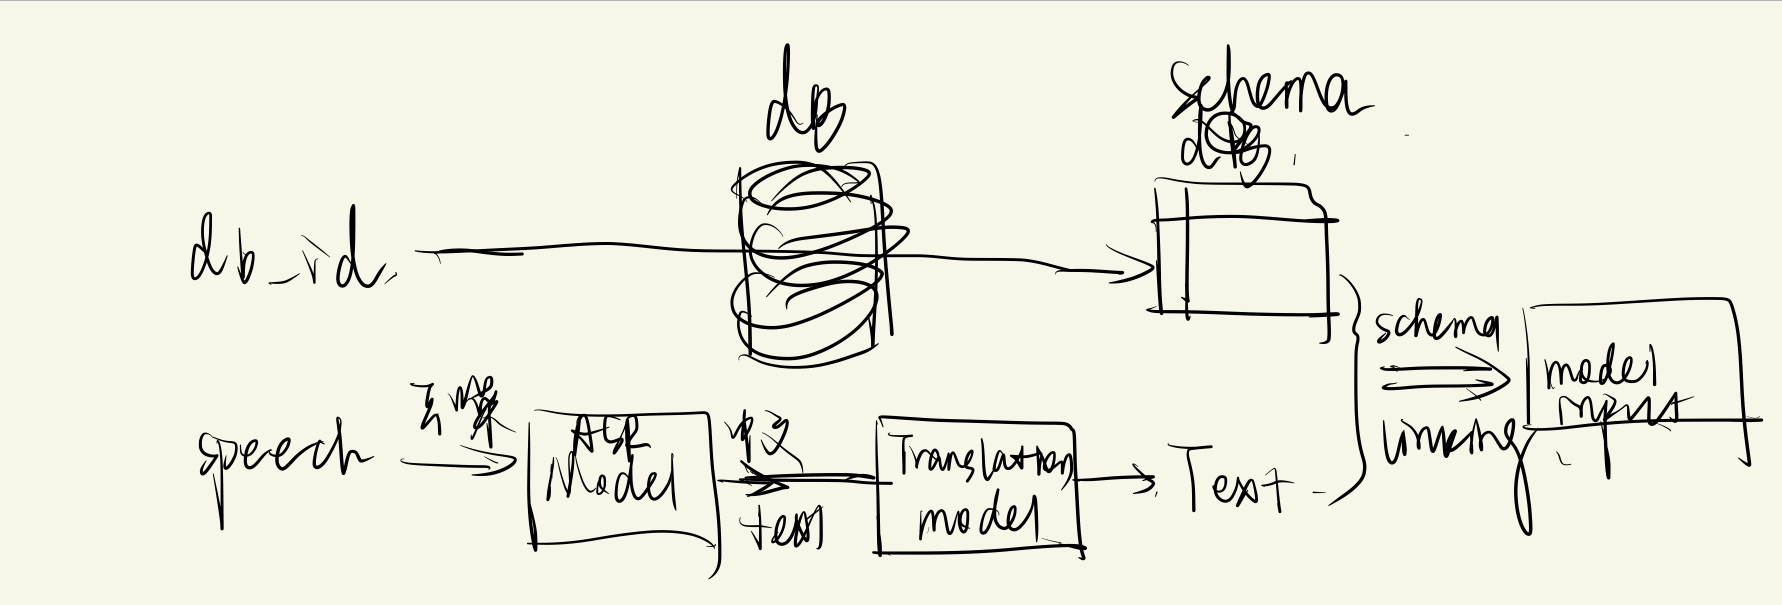 db
schema
db_id
去噪
speech
ASR
Model
中文
text
Translation
model
Text
schema
linking
model
input